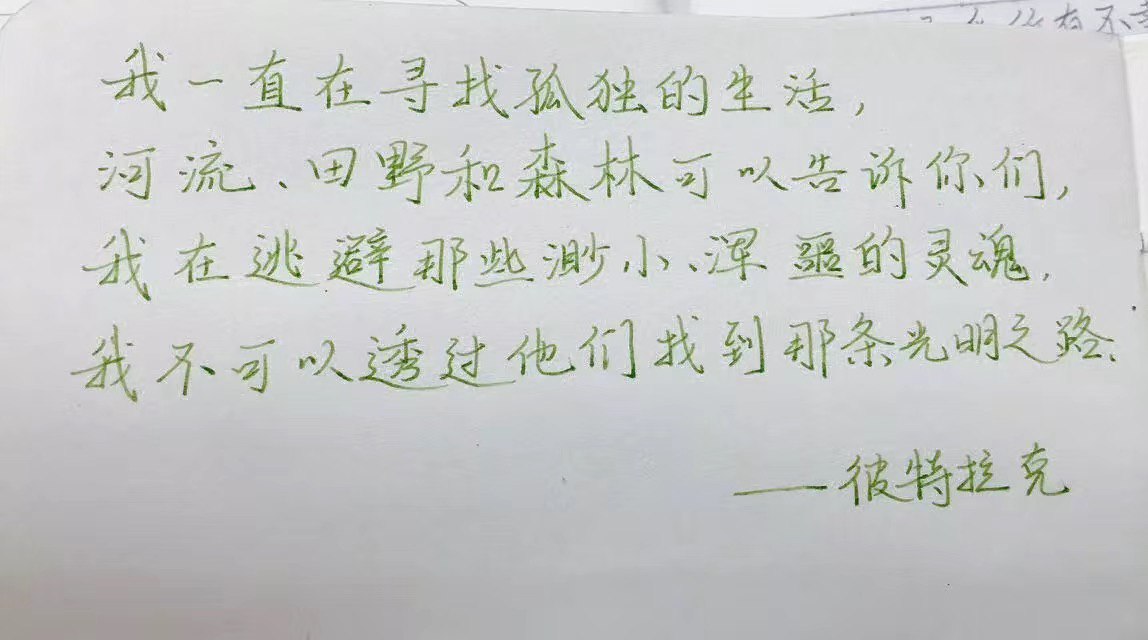 我一直在寻找孤独的生活,
河流、田野和森林可以告诉你们,
我在逃避那些渺小、浑噩的灵魂,
我不可以透过他们找到那条光明之路.
——彼特拉克